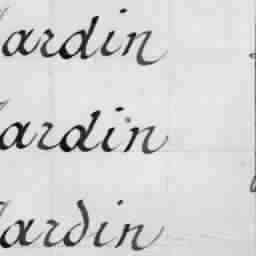 ardin
ardin
ardin